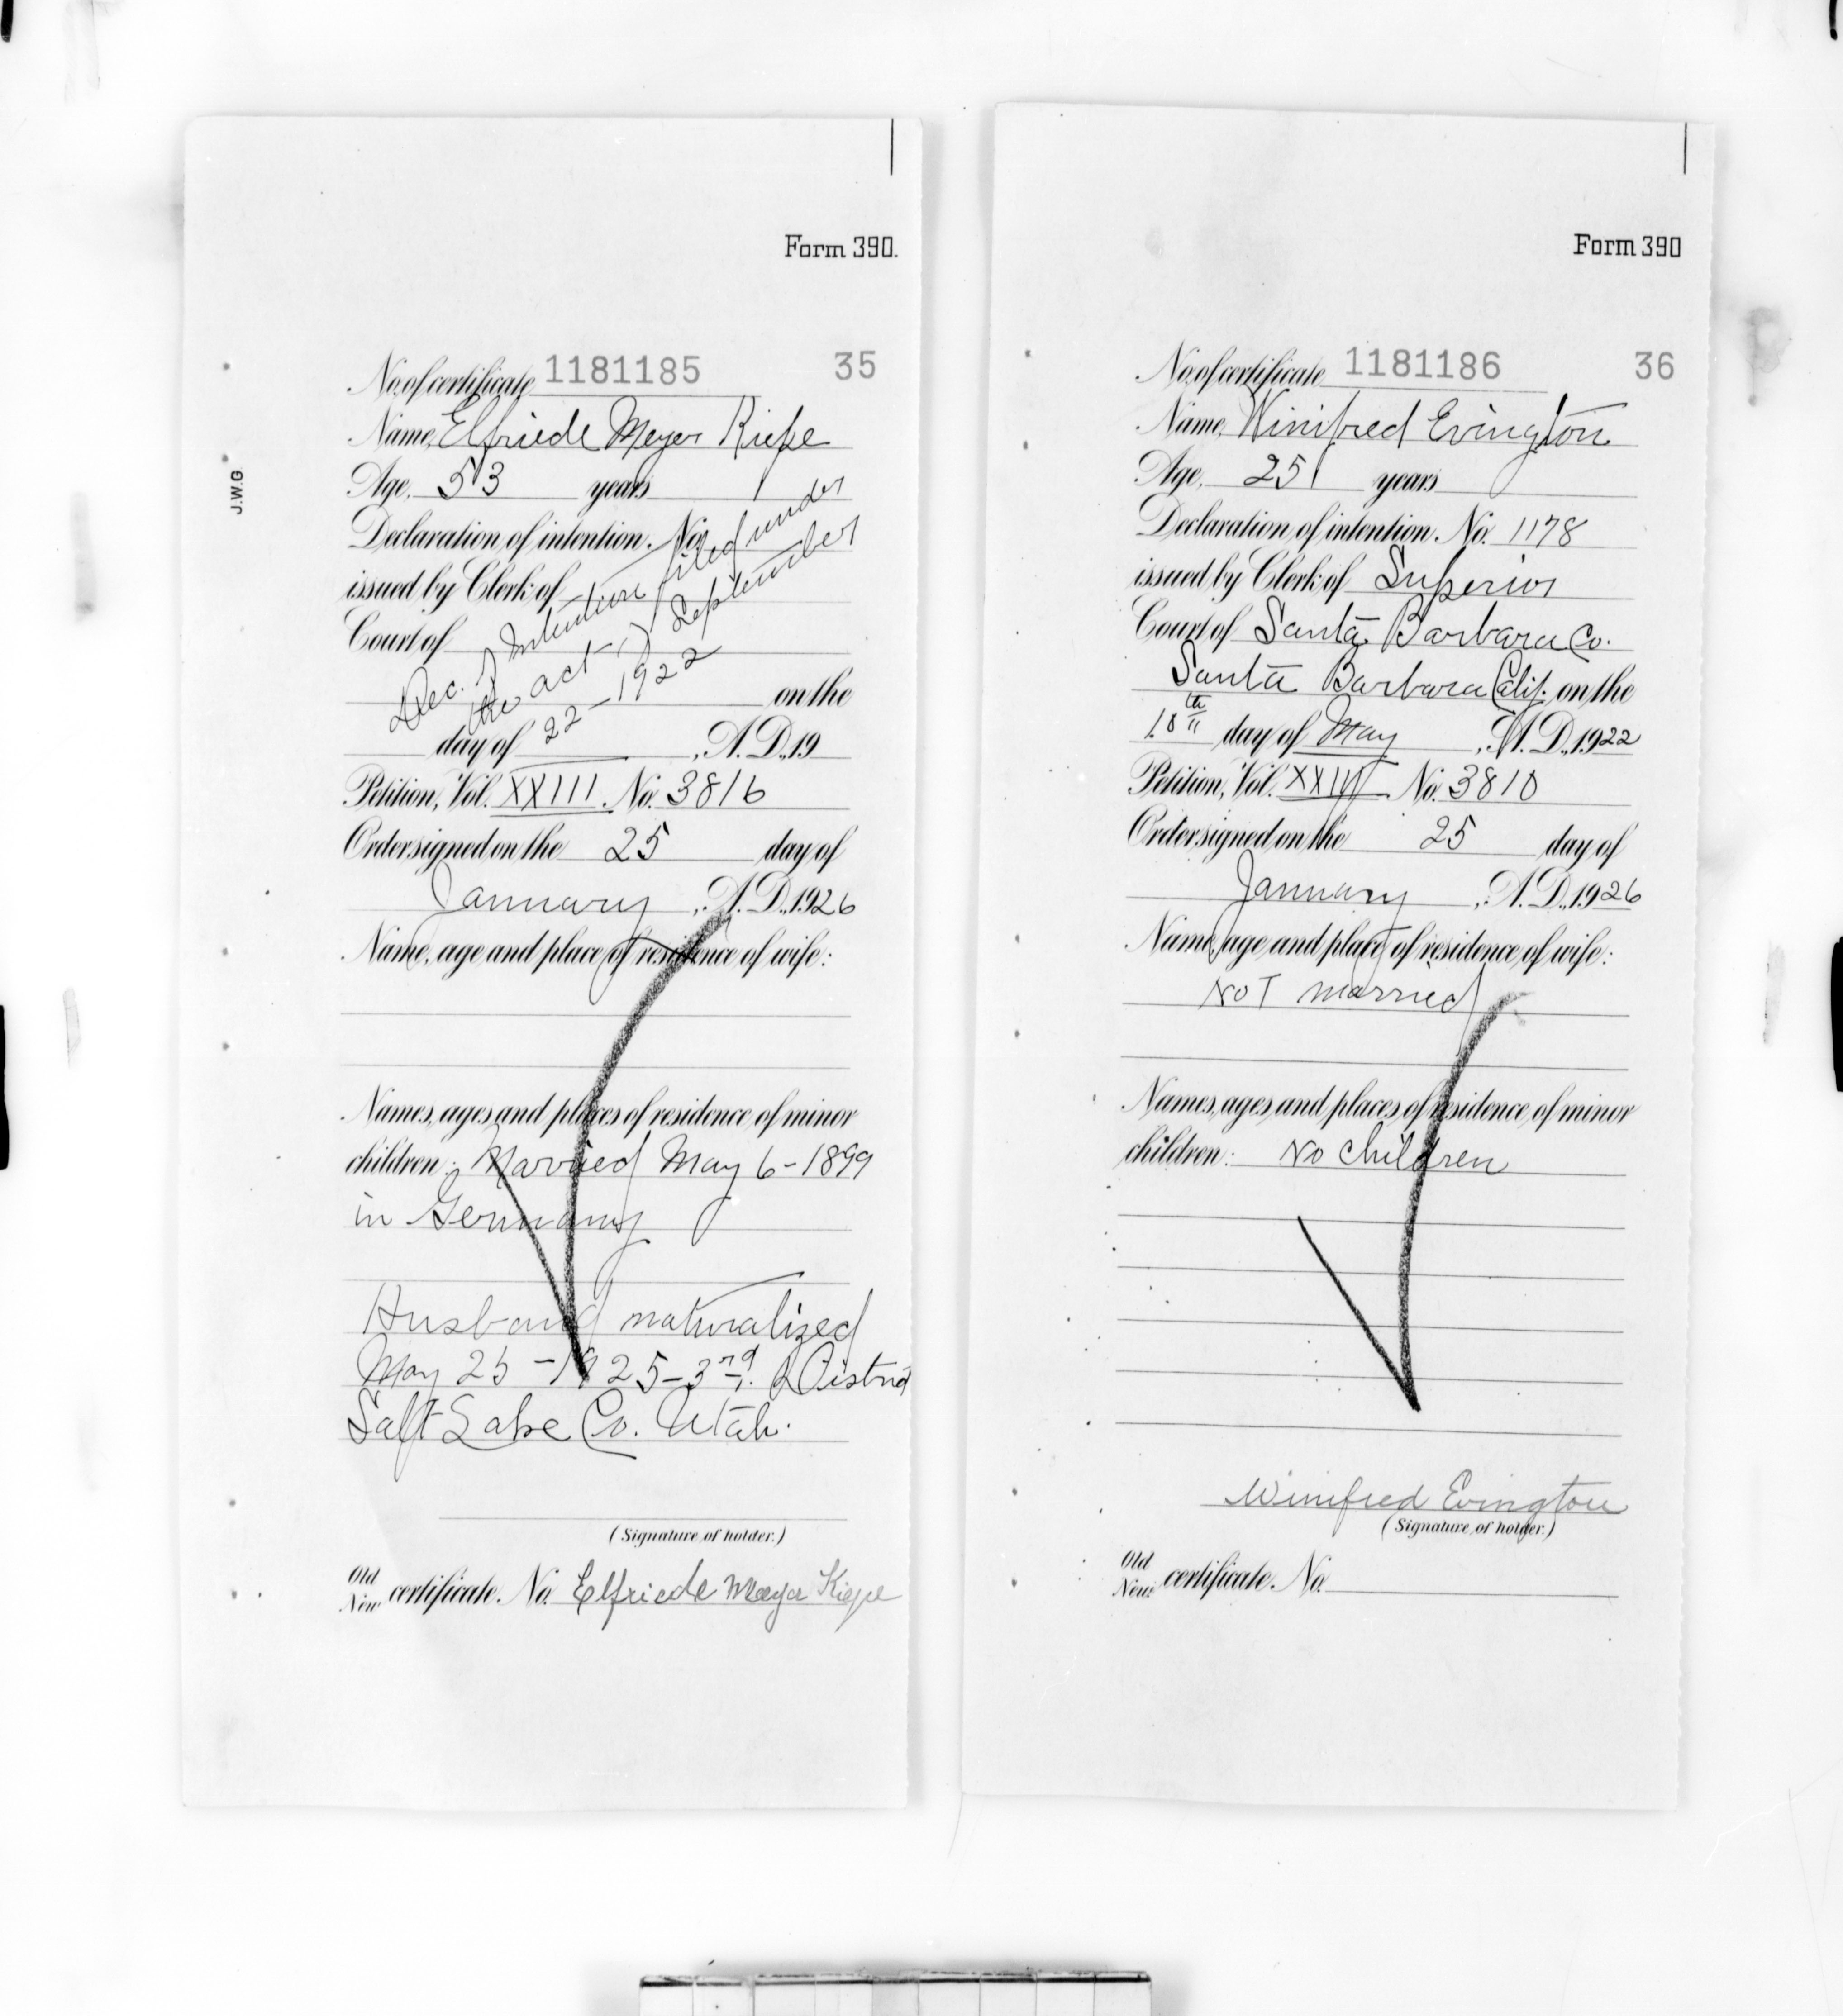 Form 390.
No. of certificate 1181185 35
Name, Elfriede Meyer Kiepe
Age, 53 years
Declaration of intention. No.
issued by Clerk of
Court of
Dec. of Intention filed under
the act of September
22 - 1922
on the
day of , A.D., 19
Petition, Vol. XXIII. No. 3816
Order signed on the 25 day of
January , A.D., 1926
Name, age and place of residence of wife:
Names, ages and places of residence of minor
children: Married May 6 - 1899
in Germany
Husband naturalized
May 25 - 1925 - 3rd. District
Salt Lake Co. Utah.
(Signature of holder.)
Old
New certificate. No. Elfriede Meyer Kiepe
J.W.G
Form 390
No. of certificate 1181186 36
Name, Winifred Evington
Age, 25 years
Declaration of intention. No. 1178
issued by Clerk of Superior
Court of Santa Barbara Co.
Santa Barbara Calif. on the
10th day of May , A.D., 1922
Petition, Vol. XXIII No. 3810
Order signed on the 25 day of
January , A.D., 1926
Name, age and place of residence of wife:
Not married
Names, ages and places of residence of minor
children: No children
Winifred Evington
(Signature of holder.)
Old
New certificate. No.